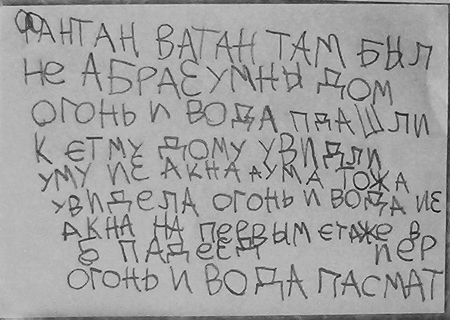 ФАНТАН ВАТАН ТАМ БЫЛ
не АБРАЕУМНЫ ДОМ
ОГОНЬ И ВОДА ПДАШЛИ
К ЕТМУ ДОМУ УВИДЛИ
УМУ ИЕ АКНА АУМА ТОЖА
УВИДЕЛА ОГОНЬ И ВОДА ИЕ
АКНА НА ПЕРВЫМ ЕТАЖЕ В
ПАДЕЕД ПЕР
ОГОНЬ И ВОДА ПАСМАТ